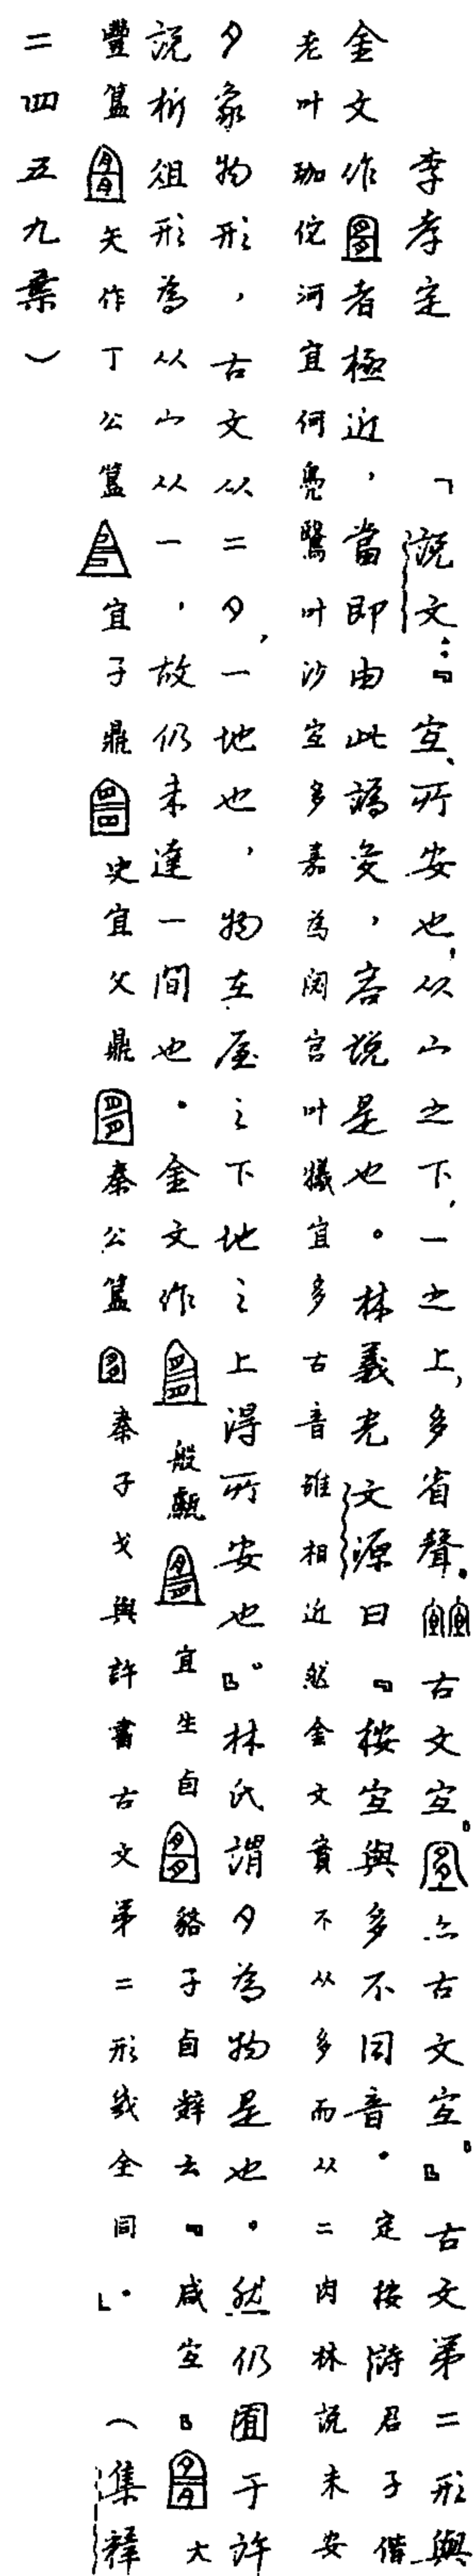 李孝定 「說文：『宜、所安也，从宀之下，一之上，多省聲。古文宜。亦古文宜。』古文第二形與
金文作者極近，當即由此譌變，容說是也。林義光文源曰『按宜與多不同音。定按詩君子偕
老叶珈佗河宜何鳧鷖叶沙宜多嘉為閟宮叶犧宜多古音雖相近然金文實不从多而从二肉林說未安
夕象物形，古文从二夕，一地也，物在屋之下地之上得所安也』。林氏謂夕為物是也。然仍囿于許
說析俎形為从宀从一，故仍未達一間也。金文作般甗宜生卣貉子卣辭云『咸宜』大
豐簋矢作丁公簋宜子鼎史宜父鼎秦公簋秦子戈與許書古文第二形幾全同」。（集釋
二四五九葉）